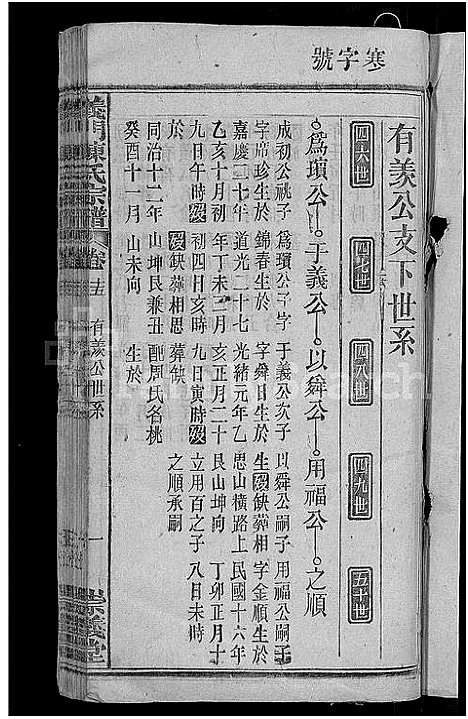 寒字號
有羨公支下世系
四六世
四七世
四八世
四九世
五十世
爲瓆公
于義公
以舜公
用福公
之順
成初公祧子
字席珍生於
嘉慶二十年
乙亥十月初
九日午時歿
於
同治十二年
癸酉十一月
爲瓆公子字
錦春生於
道光二十七
年丁未二月
初四日亥時
歿缺葬相思
山坤艮兼丑
山未向
于義公次子
字舜日生於
光緒元年乙
亥正月二十
九日寅時歿
葬缺
配周氏名桃
生於
以舜公嗣子
生歿缺葬相
思山橫路上
艮山坤向
立用百之子
之順承嗣
用福公嗣子
字金順生於
民國十六年
丁卯正月十
八日未時
義門陳氏宗譜
卷十五
有羨公世系
一
崇義堂